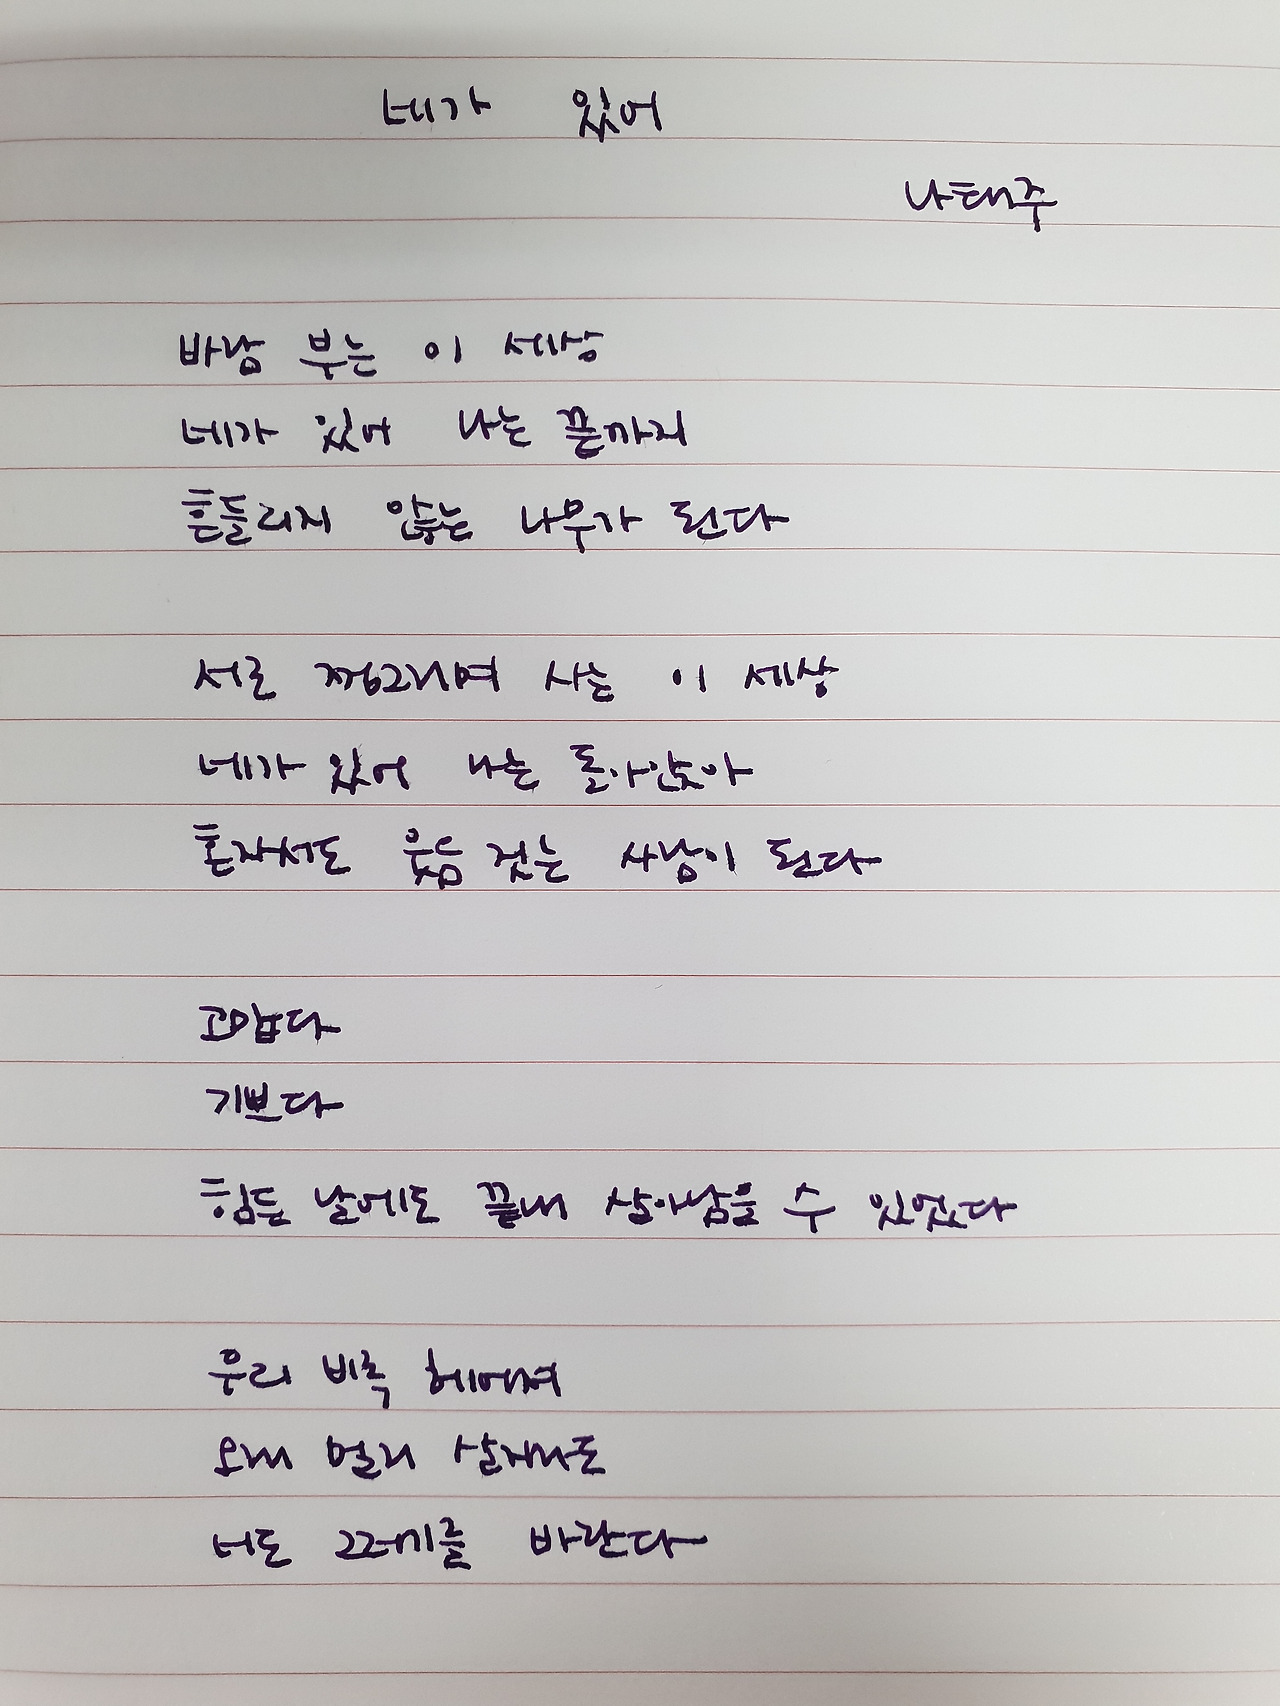 네가 있어
나태주
바람 부는 이 세상
네가 있어 나는 끝까지
흔들리지 않는 나무가 된다
서로 찡그리며 사는 이 세상
네가 있어 나는 돌아앉아
혼자서도 웃음 짓는 사람이 된다
고맙다
기쁘다
힘든 날에도 끝내 살아남을 수 있었다
우리 비록 헤어져
오래 멀리 살지라도
너도 그러기를 바란다